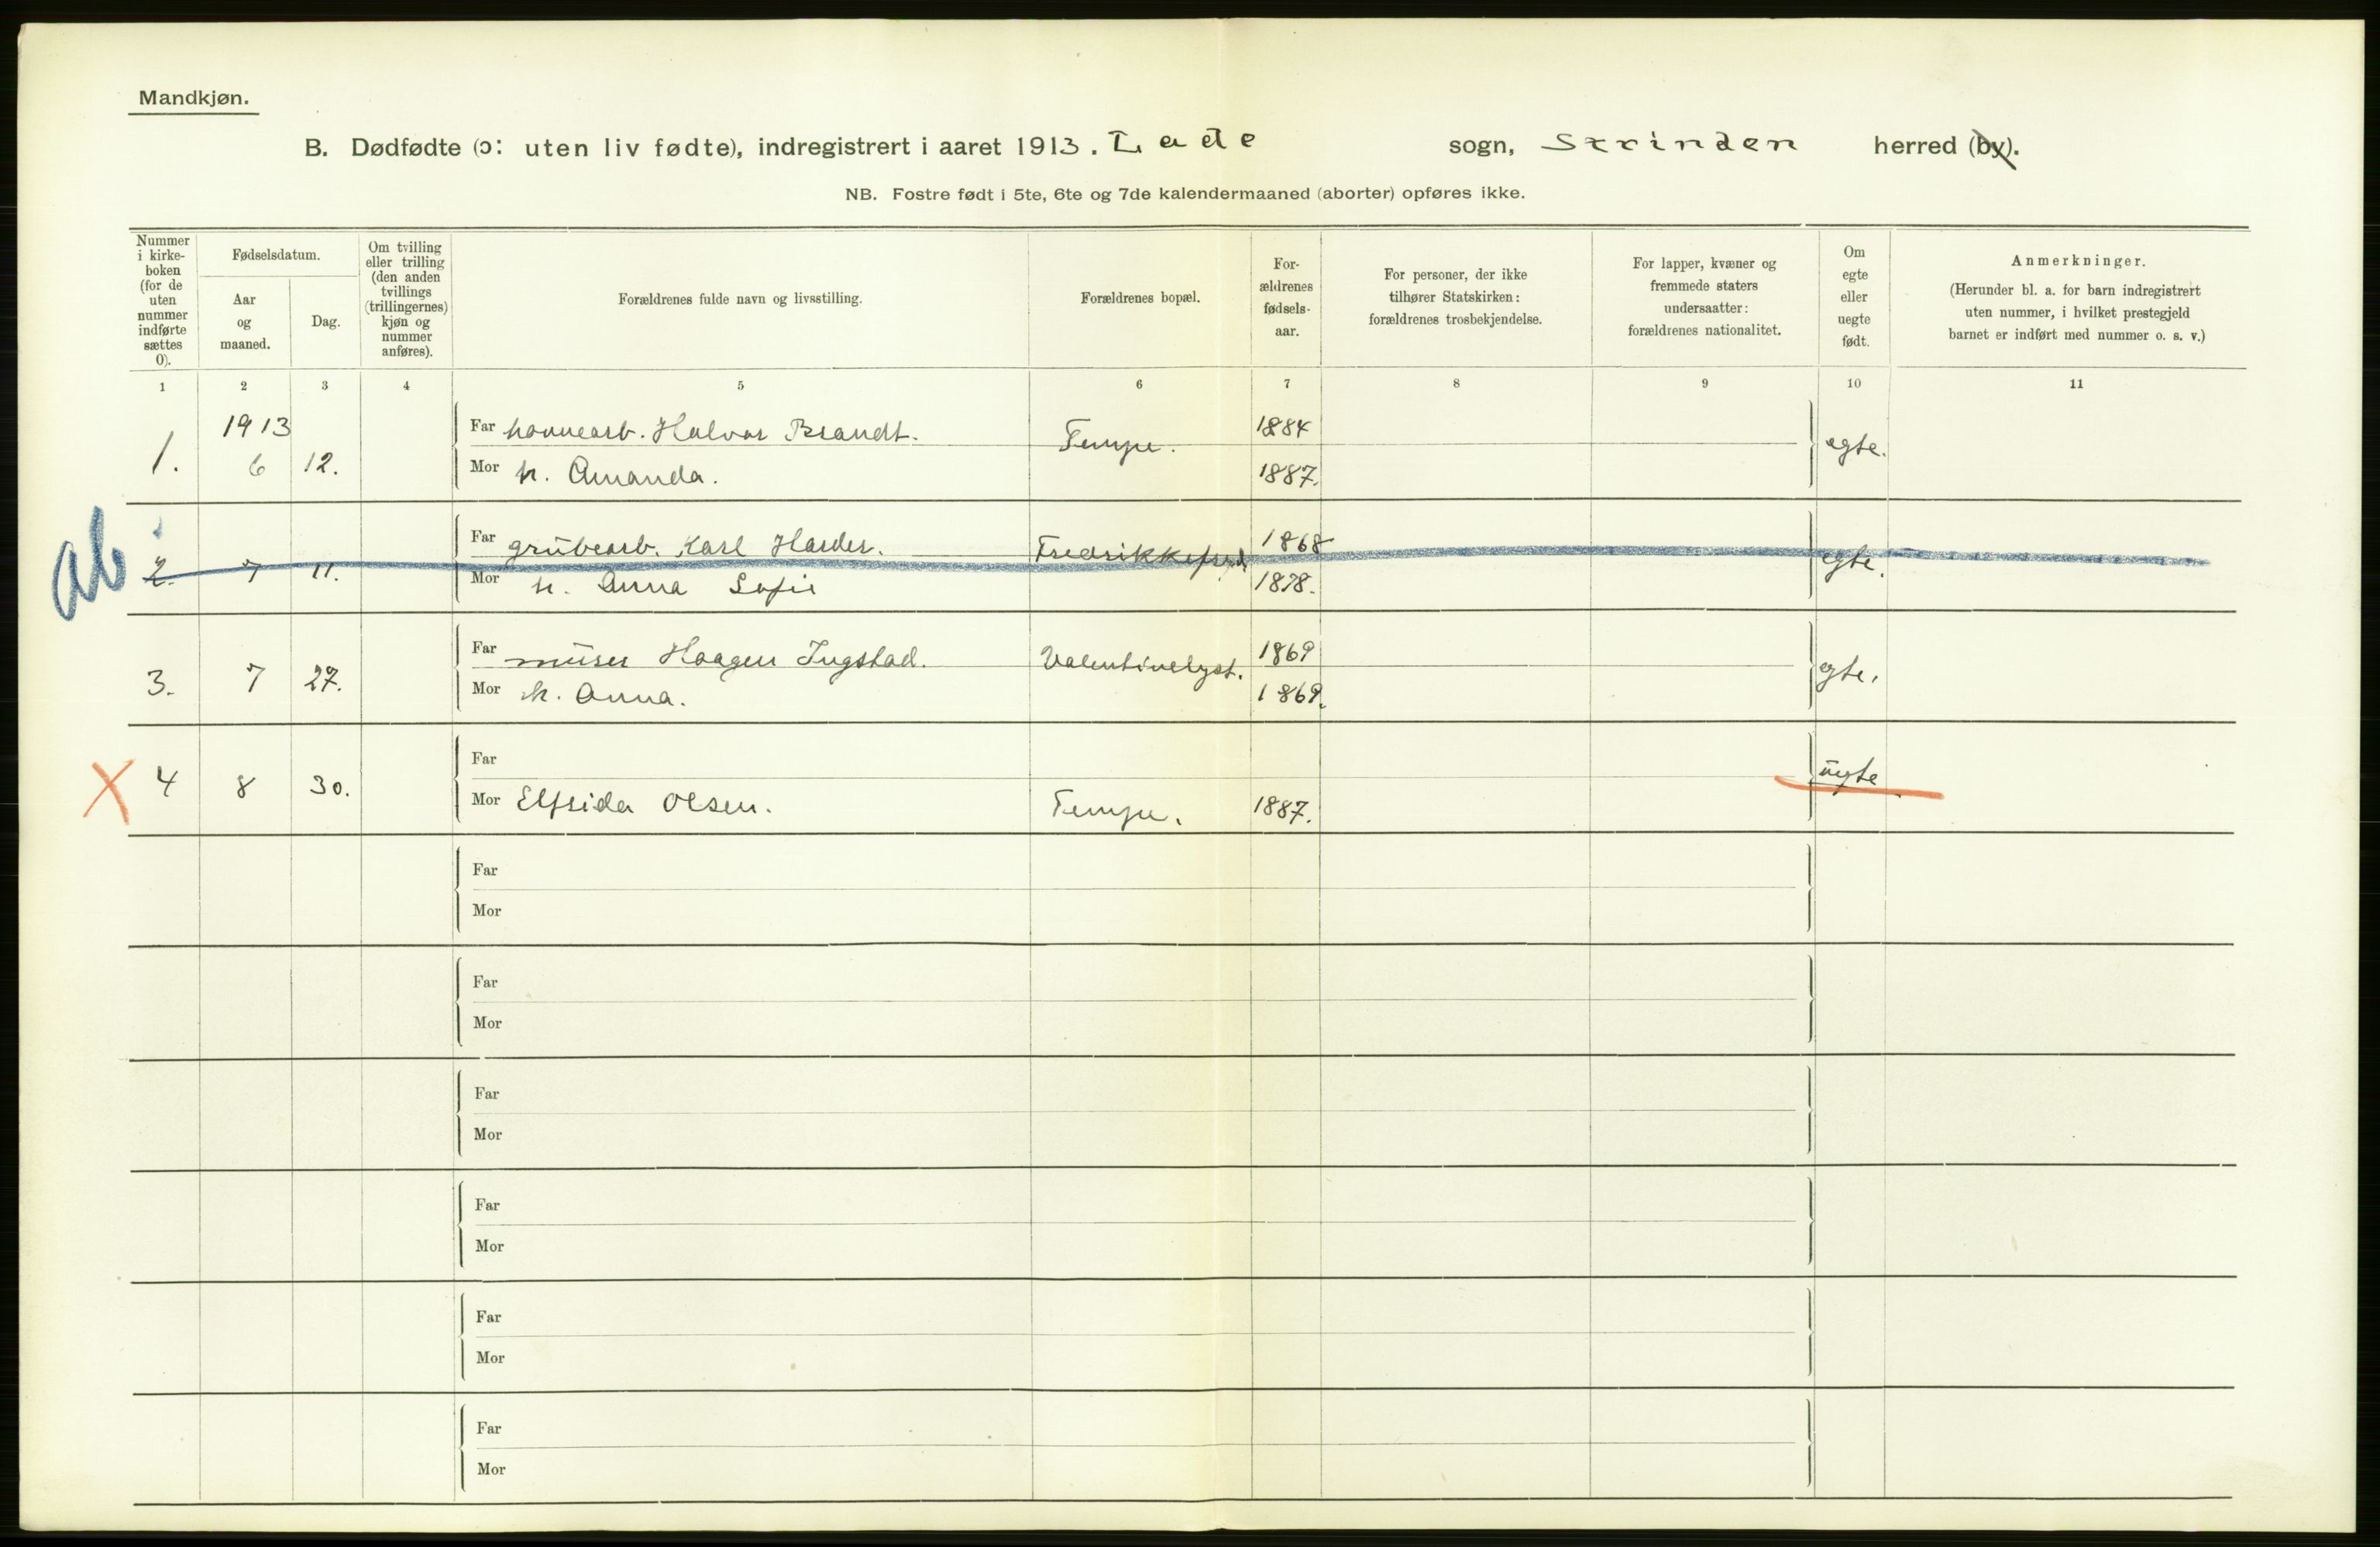 Mandkjøn.
B. Dødfødte (ɔ: uten liv fødte), indregistrert i aaret 1913. Lade sogn, Strinden herred (by).
NB. Fostre født i 5te, 6te og 7de kalendermaaned (aborter) opføres ikke.
Nummer i kirke-boken (for de uten nummer indførte sættes 0).
Fødselsdatum.
Aar og maaned.
Dag.
Om tvilling eller trilling (den anden tvillings (trillingernes) kjøn og nummer anføres).
Forældrenes fulde navn og livsstilling.
Forældrenes bopæl.
For-ældrenes fødsels-aar.
For personer, der ikke tilhører Statskirken: forældrenes trosbekjendelse.
For lapper, kvæner og fremmede staters undersaatter: forældrenes nationalitet.
Om egte eller uegte født.
Anmerkninger.
(Herunder bl. a. for barn indregistrert uten nummer, i hvilket prestegjeld barnet er indført med nummer o. s. v.)
1 2 3 4 5 6 7 8 9 10 11
1913
Far havnearb. Halvor Brandt. 1884
1. 6 12. Tempe. egte.
Mor h. Amanda. 1887.
ab
Far grubearb. Karl Harder. 1868
2. 7 11. egte.
Mor h. Anna Sofie 1878.
Far murer Haagen Ingstad. 1869
3. 7 27. Valentinelyst. egte.
Mor h. Anna. 1869.
X
Far
4 8 30. uegte
Mor Elfrida Olsen. Tempe. 1887.
Far
Mor
Far
Mor
Far
Mor
Far
Mor
Far
Mor
Far
Mor